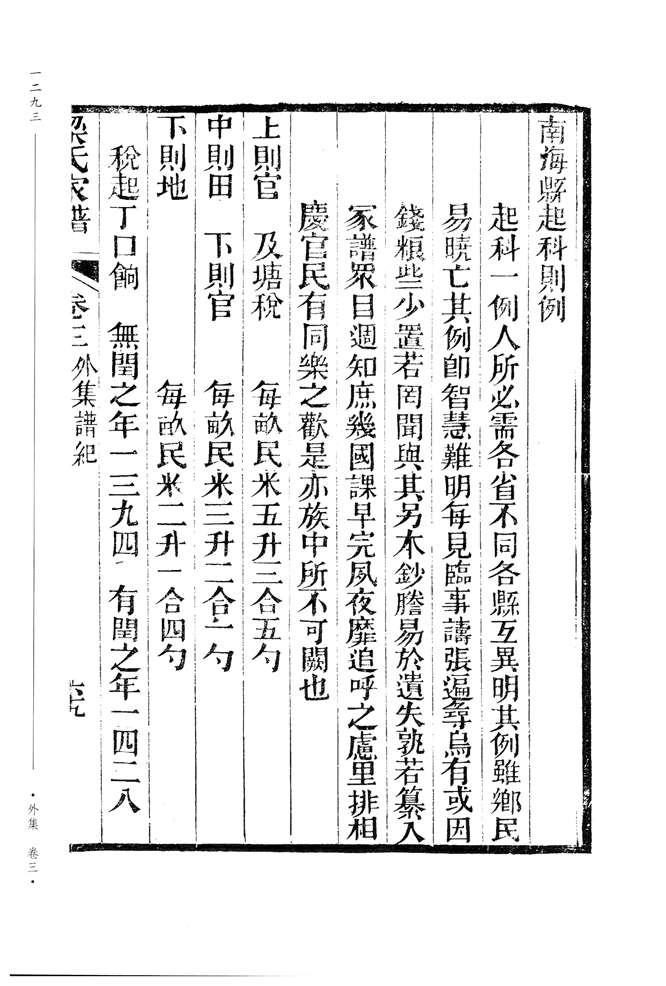 南海縣起科則例
起科一例人所必需各省不同各縣互異明其例雖鄉民
易曉亡其例卽智慧難明每見臨事譸張遍尋烏有或因
錢粮些少置若罔聞與其另木鈔謄易於遺失孰若纂入
家譜眾目週知庶幾國課早完夙夜靡追呼之慮里排相
慶官民有同樂之歡是亦族中所不可闕也
上則官 及塘稅 每畝民米五升三合五勺
中則田 下則官 每畝民米三升二合一勺
下則地 每畝民米二升一合四勺
稅起丁口餉 無閏之年一三九四 有閏之年一四二八
梁氏家譜 卷三外集譜紀 六九
一二九三
·外集 卷三·